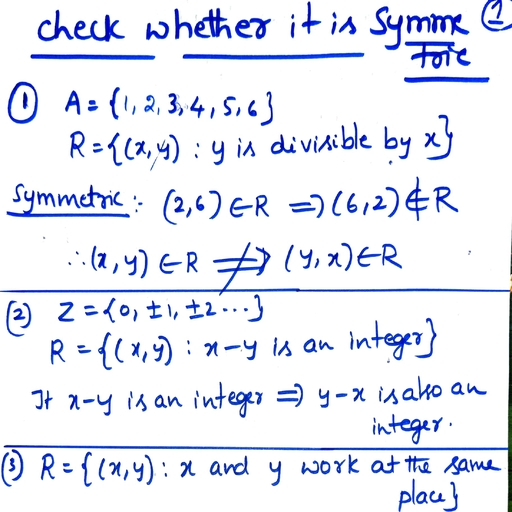 check whether it is Symme
tric
1
① A = {1, 2, 3, 4, 5, 6}
R = {(x, y) : y is divisible by x}
Symmetric :- (2,6) ∈ R ⇒ (6,2) ∉ R
∴ (x, y) ∈ R ⇏ (y, x) ∈ R
② Z = {0, ±1, ±2 ...}
R = {(x, y) : x-y is an integer}
If x-y is an integer ⇒ y-x is also an
integer.
③ R = {(x, y) : x and y work at the same
place}